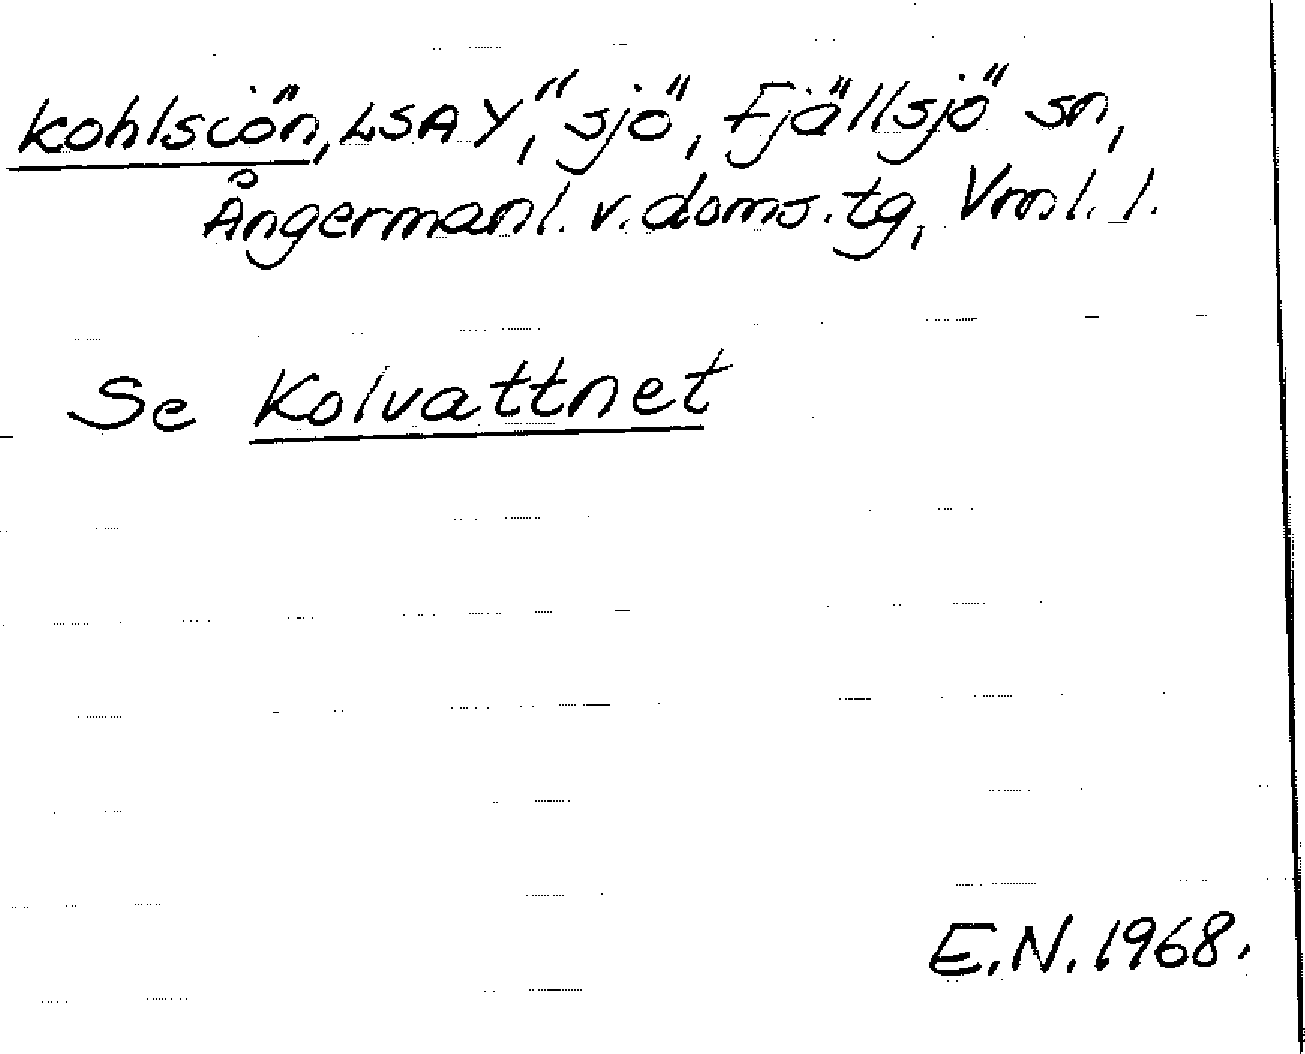 kohlsiön, LSA Y, "sjö", Fjällsjö sn,
Ångermanl. v. doms.tg, Vrnl. l.
Se Kolvattnet
E.N. 1968.